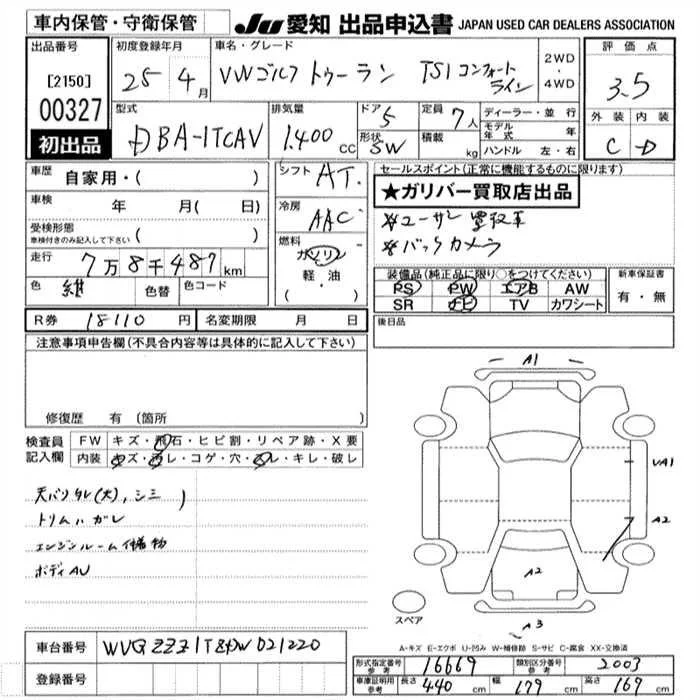 車内保管・守衛保管
JU 愛知 出品申込書 JAPAN USED CAR DEALERS ASSOCIATION
出品番号 初度登録年月 車名・グレード 評価点
[2150] 25 4月 VWゴルフトゥーラン TSIコンフォートライン 2WD・4WD 3.5
00327 型式 排気量 ドア 5 定員 7人 ディーラー・並行 外装 内装
初出品 DBA-1TCAV 1.400cc 形状 SW 積載 kg モデル年式 年 C D
ハンドル 左・右
車歴 自家用・( ) シフト AT. セールスポイント(正常に機能するものに限ります)
★ガリバー買取店出品
車検 年 月(日) 冷房 AAC ※ユーザー買取車
受検形態 車検付きのみ記入して下さい ( ) 燃料 ガソリン ※バックカメラ
走行 7万8千487km 軽・油 ( )
装備品(純正品に限り○をつけてください) 新車保証書
色 紺 色替 色コード PS PW エアB AW 有・無
SR ナビ TV カワシート
R券 18110円 名変期限 月 日 後日品
注意事項申告欄(不具合内容等は具体的に記入して下さい)
A1
修復歴 有 (箇所 )
検査員記入欄 FW キズ・飛石・ヒビ割・リペア跡・X要
内装 キズ・汚レ・コゲ・穴・スレ・キレ・破レ
UA1
天バリタレ(大),シミ )
トリムハガレ
A2
エンジンルーム付着物
ボディAU
A2
スペア
A3
A-キズ E-エクボ U-凹み W-補修跡 S-サビ C-腐食 XX-交換済
車台番号 WVGZZZ1TZDW021220
形式指定番号 参考 16669 類別区分番号 参考 2003
登録番号 車庫証明用 参考 長さ 440cm 幅 179cm 高さ 167cm